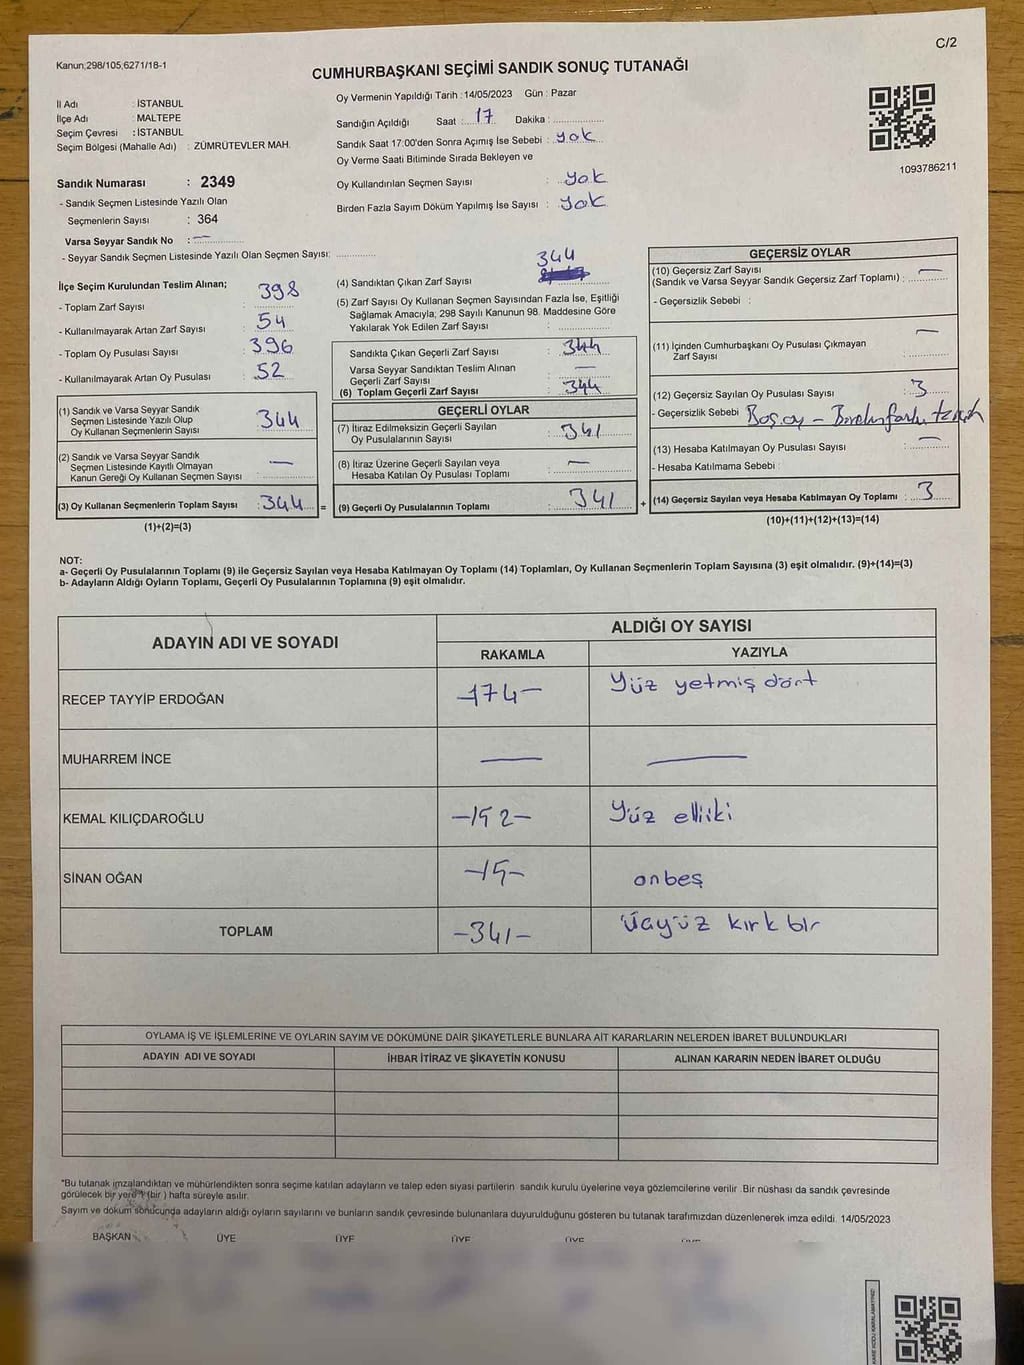 C/2
Kanun;298/105,6271/18-1
CUMHURBAŞKANI SEÇİMİ SANDIK SONUÇ TUTANAĞI
İl Adı : İSTANBUL
İlçe Adı : MALTEPE
Seçim Çevresi : İSTANBUL
Seçim Bölgesi (Mahalle Adı) : ZÜMRÜTEVLER MAH.
Sandık Numarası : 2349
- Sandık Seçmen Listesinde Yazılı Olan
Seçmenlerin Sayısı : 364
Varsa Seyyar Sandık No : —
- Seyyar Sandık Seçmen Listesinde Yazılı Olan Seçmen Sayısı:
Oy Vermenin Yapıldığı Tarih : 14/05/2023 Gün : Pazar
Sandığın Açıldığı Saat : 17 Dakika :
Sandık Saat 17:00'den Sonra Açımış İse Sebebi : yok
Oy Verme Saati Bitiminde Sırada Bekleyen ve
Oy Kullandırılan Seçmen Sayısı : yok
Birden Fazla Sayım Döküm Yapılmış İse Sayısı : yok
1093786211
İlçe Seçim Kurulundan Teslim Alınan;
- Toplam Zarf Sayısı 398
- Kullanılmayarak Artan Zarf Sayısı 54
- Toplam Oy Pusulası Sayısı 396
- Kullanılmayarak Artan Oy Pusulası 52
(1) Sandık ve Varsa Seyyar Sandık
Seçmen Listesinde Yazılı Olup
Oy Kullanan Seçmenlerin Sayısı 344
(2) Sandık ve Varsa Seyyar Sandık
Seçmen Listesinde Kayıtlı Olmayan
Kanun Gereği Oy Kullanan Seçmen Sayısı —
(3) Oy Kullanan Seçmenlerin Toplam Sayısı : 344 =
(1)+(2)=(3)
344
(4) Sandıktan Çıkan Zarf Sayısı
(5) Zarf Sayısı Oy Kullanan Seçmen Sayısından Fazla İse, Eşitliği
Sağlamak Amacıyla; 298 Sayılı Kanunun 98. Maddesine Göre
Yakılarak Yok Edilen Zarf Sayısı :
Sandıkta Çıkan Geçerli Zarf Sayısı 344
Varsa Seyyar Sandıktan Teslim Alınan
Geçerli Zarf Sayısı —
(6) Toplam Geçerli Zarf Sayısı : 344
GEÇERLİ OYLAR
(7) İtiraz Edilmeksizin Geçerli Sayılan
Oy Pusulalarının Sayısı : 341
(8) İtiraz Üzerine Geçerli Sayılan veya
Hesaba Katılan Oy Pusulası Toplamı : —
(9) Geçerli Oy Pusulalarının Toplamı : 341 +
GEÇERSİZ OYLAR
(10) Geçersiz Zarf Sayısı
(Sandık ve Varsa Seyyar Sandık Geçersiz Zarf Toplamı) : —
- Geçersizlik Sebebi :
(11) İçinden Cumhurbaşkanı Oy Pusulası Çıkmayan
Zarf Sayısı —
(12) Geçersiz Sayılan Oy Pusulası Sayısı : 3
- Geçersizlik Sebebi : Boş oy –
(13) Hesaba Katılmayan Oy Pusulası Sayısı : —
- Hesaba Katılmama Sebebi :
(14) Geçersiz Sayılan veya Hesaba Katılmayan Oy Toplamı : 3
(10)+(11)+(12)+(13)=(14)
NOT:
a- Geçerli Oy Pusulalarının Toplamı (9) ile Geçersiz Sayılan veya Hesaba Katılmayan Oy Toplamı (14) Toplamları, Oy Kullanan Seçmenlerin Toplam Sayısına (3) eşit olmalıdır. (9)+(14)=(3)
b- Adayların Aldığı Oyların Toplamı, Geçerli Oy Pusulalarının Toplamına (9) eşit olmalıdır.
ADAYIN ADI VE SOYADI ALDIĞI OY SAYISI
RAKAMLA YAZIYLA
RECEP TAYYİP ERDOĞAN -174- Yüz yetmiş dört
MUHARREM İNCE — —
KEMAL KILIÇDAROĞLU -152- Yüz elliiki
SİNAN OĞAN -15- onbeş
TOPLAM -341- Üçyüz kırk bir
OYLAMA İŞ VE İŞLEMLERİNE VE OYLARIN SAYIM VE DÖKÜMÜNE DAİR ŞİKAYETLERLE BUNLARA AİT KARARLARIN NELERDEN İBARET BULUNDUKLARI
ADAYIN ADI VE SOYADI İHBAR İTİRAZ VE ŞİKAYETİN KONUSU ALINAN KARARIN NEDEN İBARET OLDUĞU
"Bu tutanak imzalandıktan ve mühürlendikten sonra seçime katılan adayların ve talep eden siyasi partilerin sandık kurulu üyelerine veya gözlemcilerine verilir .Bir nüshası da sandık çevresinde
görülecek bir yere 1 (bir ) hafta süreyle asılır.
Sayım ve döküm sonucunda adayların aldığı oyların sayılarını ve bunların sandık çevresinde bulunanlara duyurulduğunu gösteren bu tutanak tarafımızdan düzenlenerek imza edildi. 14/05/2023
BAŞKAN ÜYE ÜYE ÜYE ÜYE